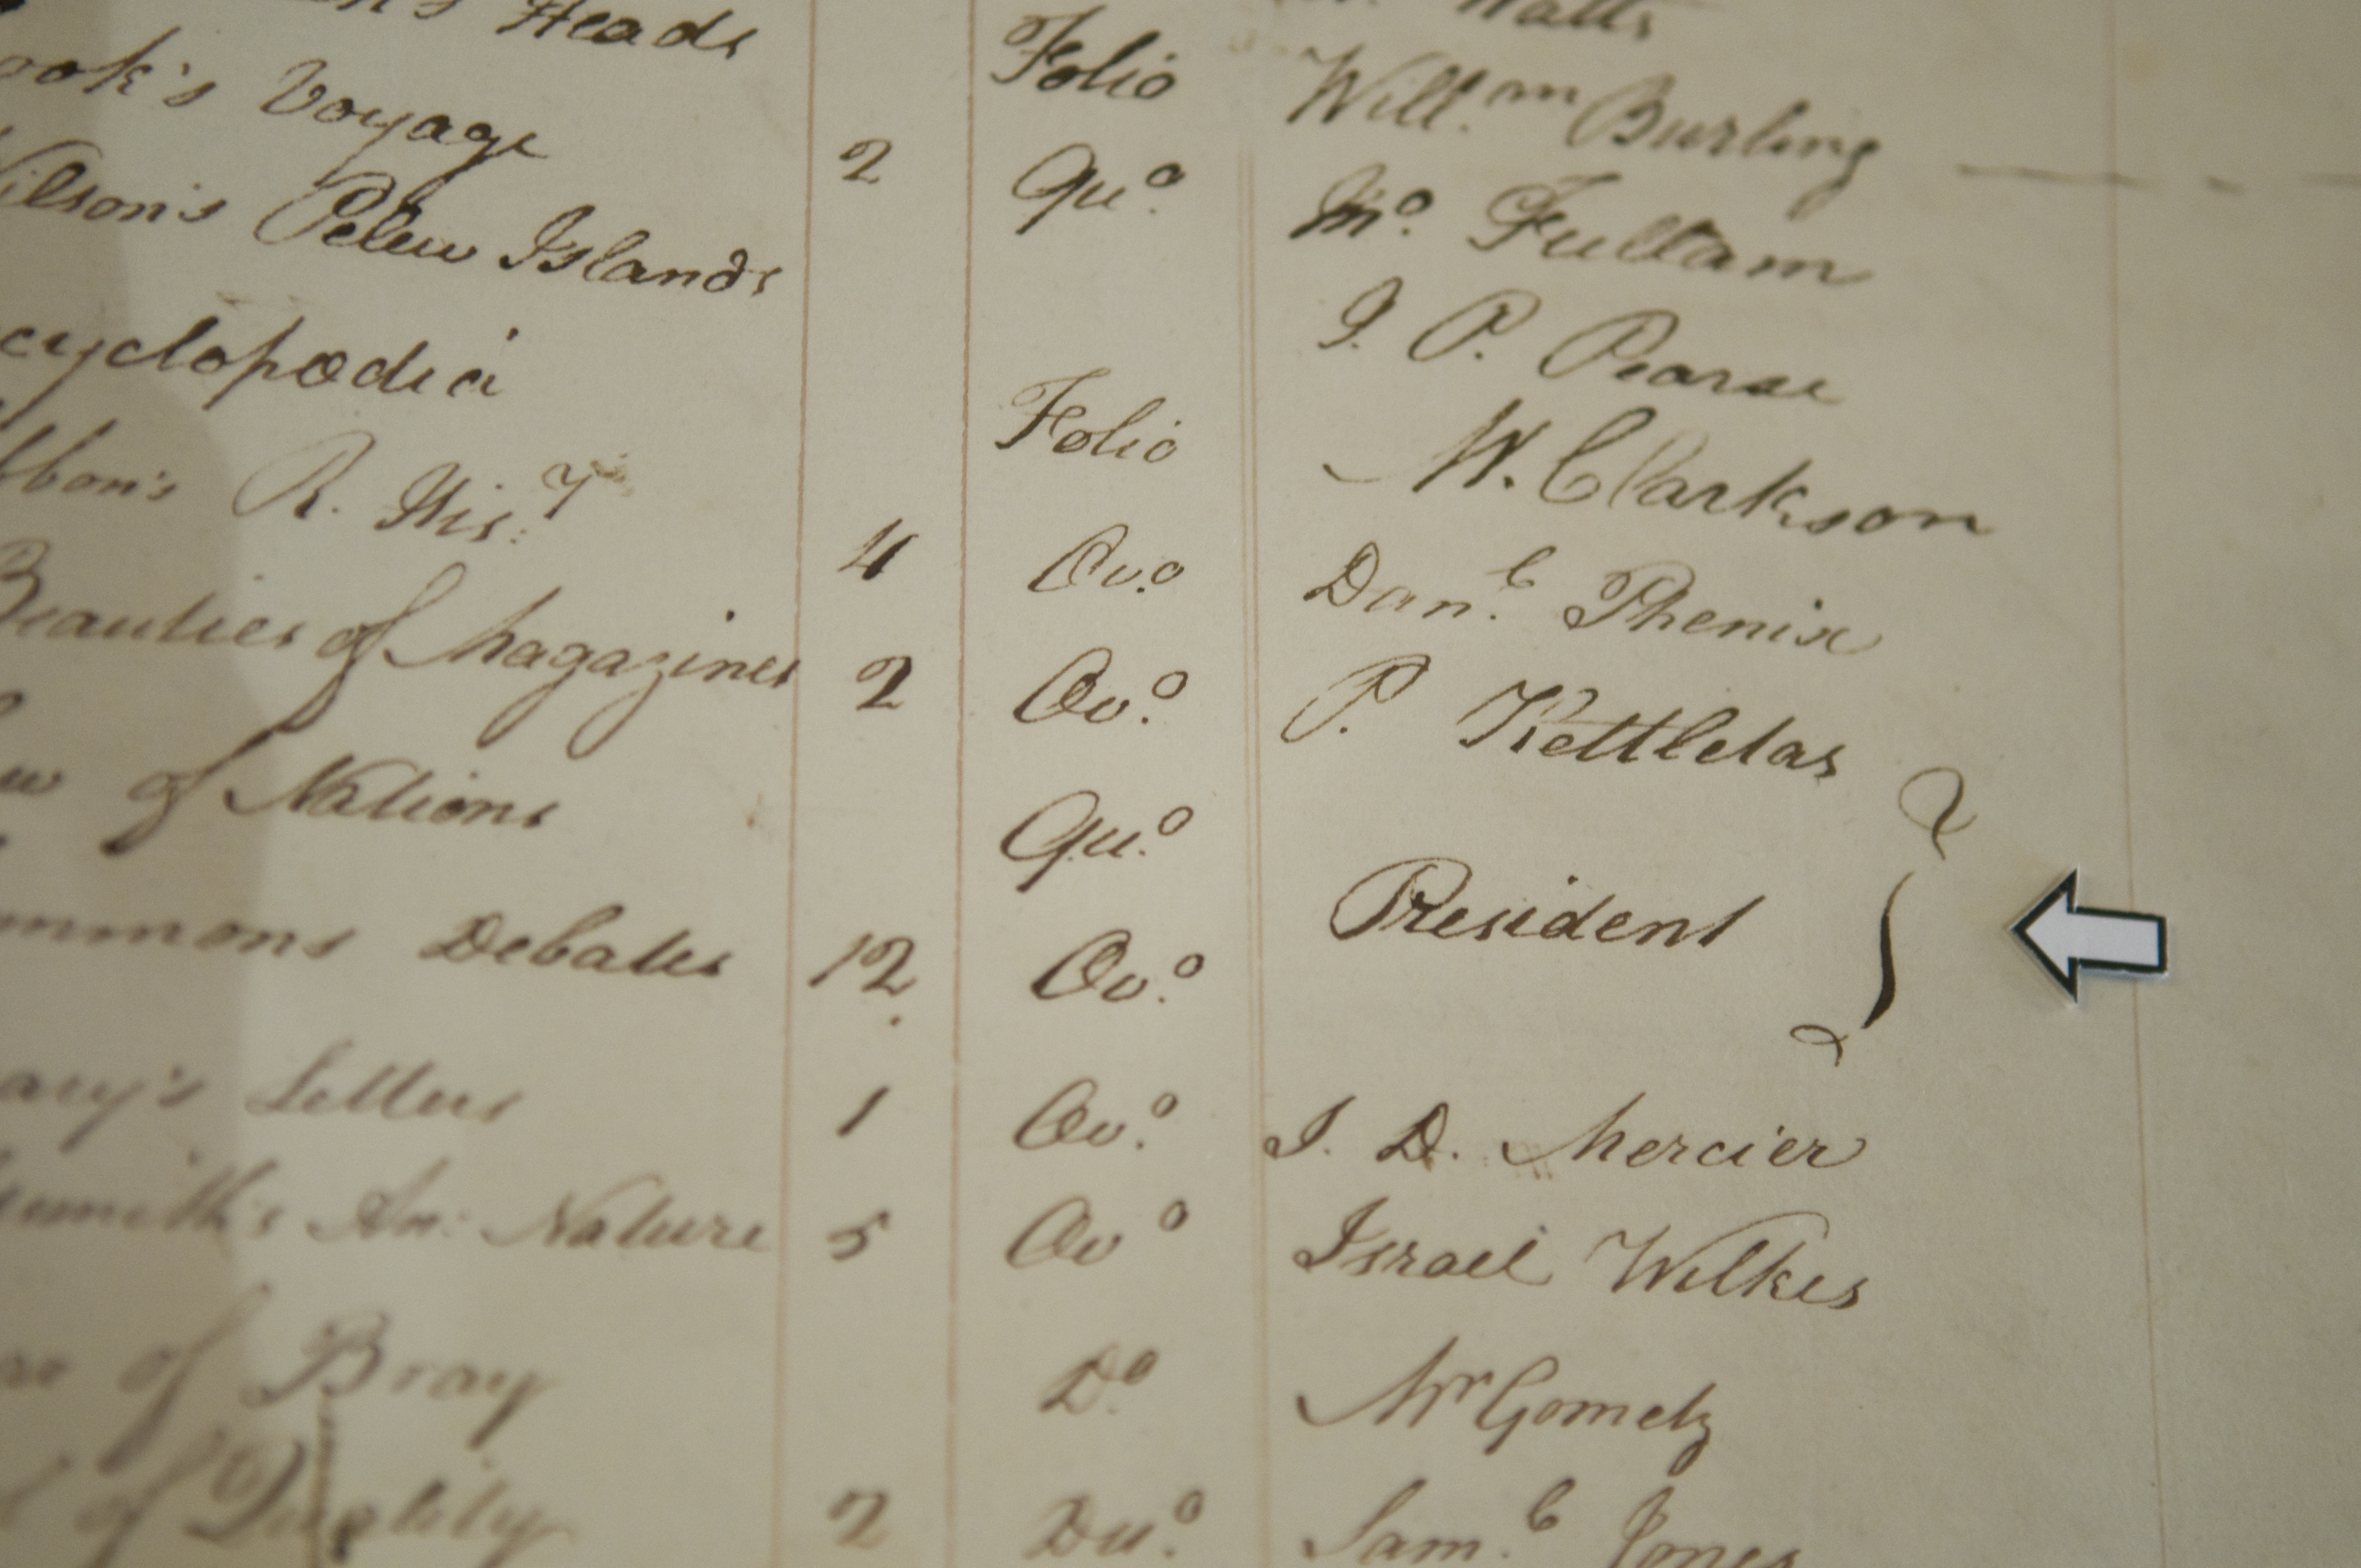 Heads Folio Watts
ook's Voyage 2 Quo. Willm. Burling
ilson's Pelew Islands Mo. Fullam
cyclopœdia Folio I. P. Pearse
bbon's R. Hisy. 4 Ovo. W. Clarkson
Beauties of Magazines 2 Ovo. Danl. Phenix
w of Nations Quo. P. Kettletas
ommons Debates 12 Ovo. President
ary's Letters 1 Ovo. I. D. Mercier
smith's An: Nature 5 Ovo Israel Wilkes
ar of Bray Do. Mr Gometz
of Quality 2 Duo. Saml. Jones